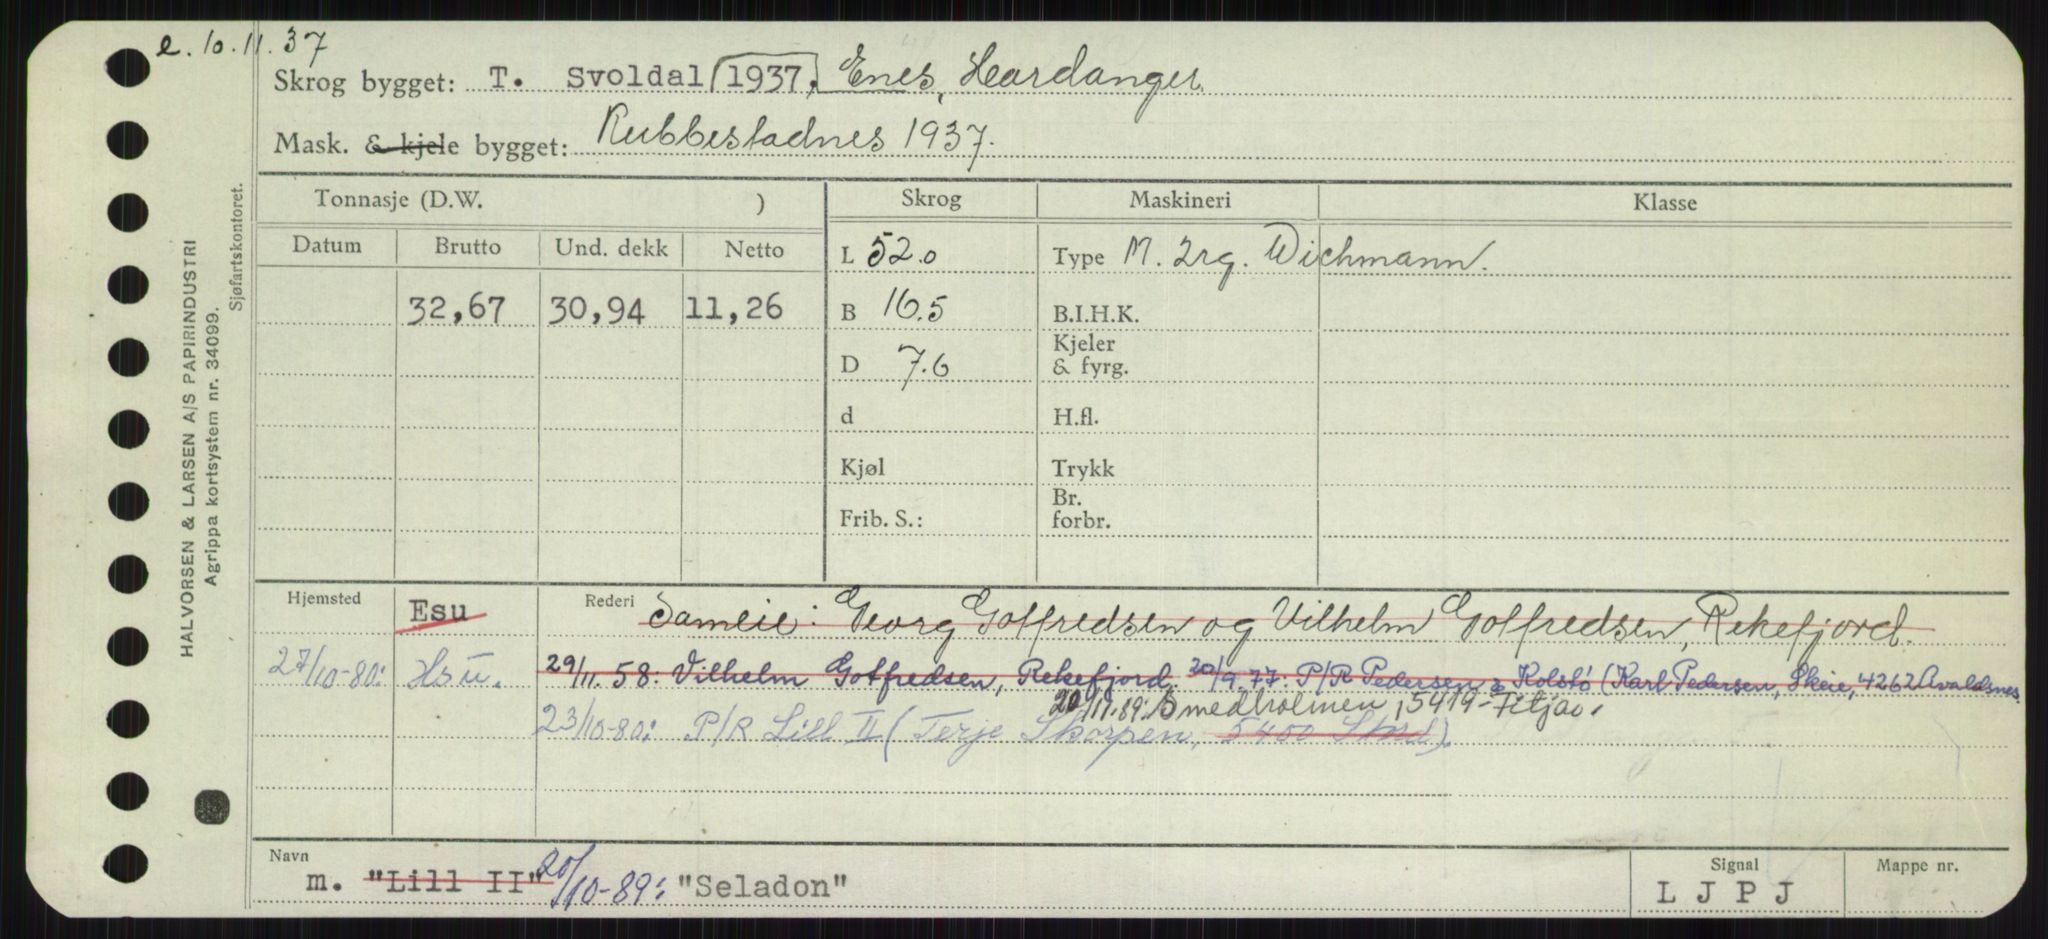 e. 10.11.37
Skrog bygget: T. Svoldal 1937, Enes, Hardanger.
Mask. & kjele bygget: Rubbestadnes 1937.
Tonnasje (D.W. ) Skrog Maskineri Klasse
Datum Brutto Und. dekk Netto L 52.0 Type M. 2rg. Wichmann.
32,67 30,94 11,26 B 16.5 B.I.H.K.
D 7.6 Kjeler & fyrg.
d H.fl.
Kjøl Trykk
Frib. S.: Br. forbr.
Hjemsted Esu Rederi Sameie: Georg Gotfredsen og Vilhelm Gotfredsen, Rekefjord.
27/10-80: Hsu. 29/11.58: Vilhelm Gotfredsen, Rekefjord. 20/9.77. P/R Pedersen & Kolstø (Karl Pedersen, Skeie, 4262 Avaldsnes
20/11.89: Smedholmen, 5419-Fitjar.
23/10-80: P/R Lill II (Terje Skorpen, 5400 Stord).
Navn m. "Lill II" 20/10-89: "Seladon"
Signal LJPJ
Mappe nr.
HALVORSEN & LARSEN A/S PAPIRINDUSTRI
Agrippa kortsystem nr. 34099.
Sjøfartskontoret.